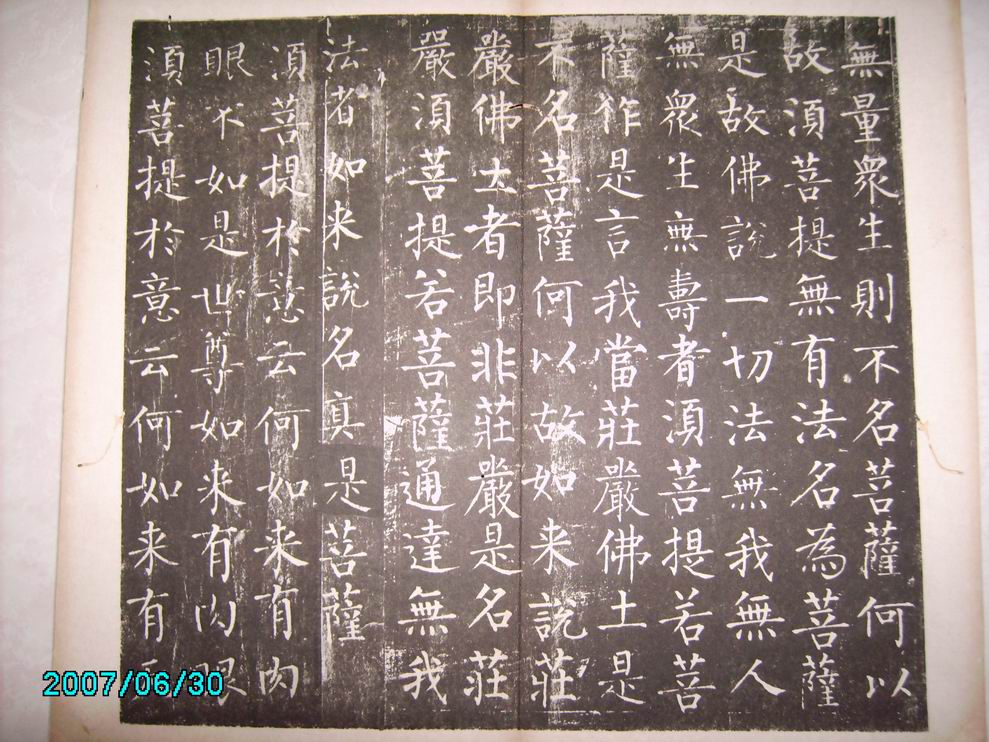 無量眾生則不名菩薩何以
故須菩提無有法名為菩薩
是故佛說一切法無我無人
無眾生無壽者須菩提若菩
薩作是言我當莊嚴佛土是
不名菩薩何以故如来說莊
嚴佛土者即非莊嚴是名莊
嚴須菩提若菩薩通達無我
法者如来說名真是菩薩
須菩提於意云何如来有肉
眼不如是世尊如来有肉眼
須菩提於意云何如来有
2007/06/30